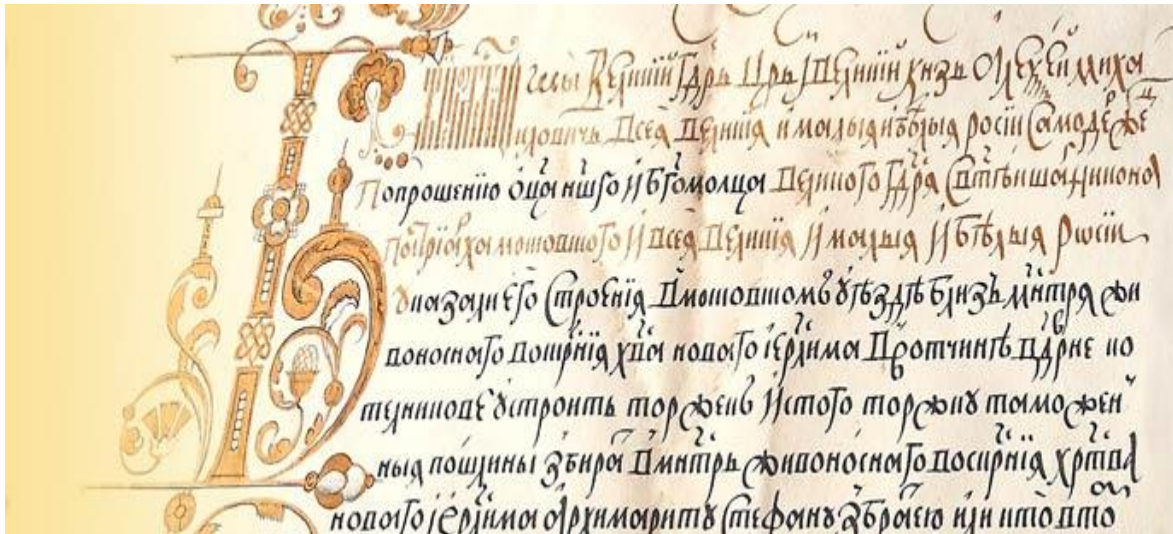 Бжиею млстию мы великий гдрь црь и великий кнзь Алеѯѣй Михаи
иловичь всеа великия и малыя и бѣлыя росии самодержец
по прошению отца ншго и бгомолца великого гдря свтѣишаг Никона
патриарха московского и всеа великия и малыя и бѣлыя росии
указали его строения в московском уѣздѣ близь мнтря жи
воносного воскрния хва нового иерлима в вотчинѣ в дрвне
устроить торжекъ и с того торжку таможен
ныя пошлины збирать в мнтрь живоносного воскрния хртва
нового иерлима архимариту стефану з братею или кто в то